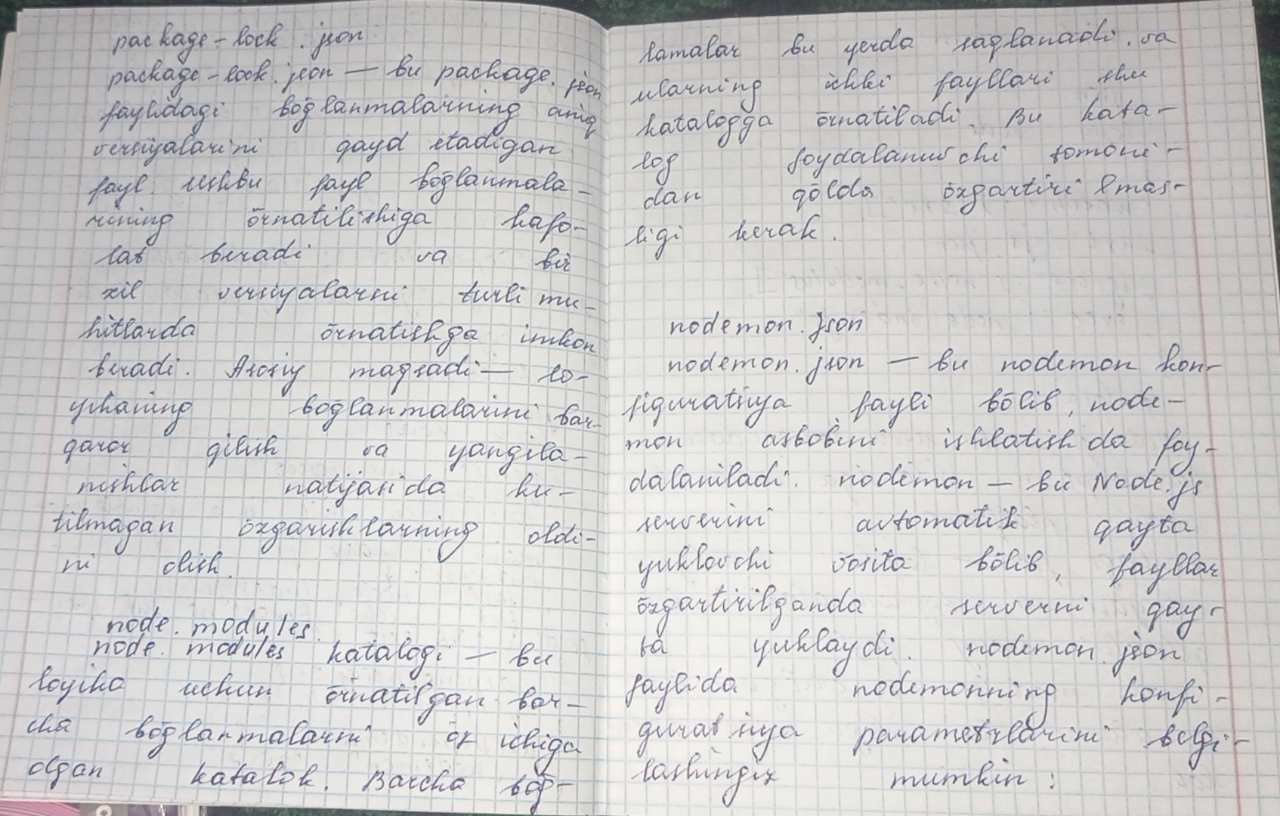 package-lock.json
package-lock.json — bu package.json
faylidagi bōḡlanmalarning aniq
versiyalarini qayd etadigan
fayl. Ushbu fayl bōḡlanmala-
rining ōrnatilishiga kafo-
lat beradi va bir
xil versiyalarni turli mu-
hitlarda ōrnatishga imkon
beradi. Asosiy maqsadi — lo-
yihaning boḡlanmalarini bar-
qaror qilish va yangila-
nishlar natijasida ku-
tilmagan ōzgarishlarning oldi-
ni olish.
node.modules.
node.modules katalogi — bu
loyiha uchun ōrnatilgan bar-
cha bōḡlanmalarni ōz ichiga
olgan katalok. Barcha bōḡ-
lamalar bu yerda saqlanadi. va
ularning ichki fayllari shu
katalogga ōrnatiladi. Bu kata-
log foydalanuvchi tomoni-
dan qōlda ōzgartirilmas-
ligi kerak.
nodemon.json
nodemon.json — bu nodemon kon-
figuratsiya fayli bōlib, node-
mon asbobini ishlatishda foy-
dalaniladi. nodemon — bu Node.js
serverini avtomatik qayta
yuklovchi vosita bōlib, fayllar
ōzgartirilganda serverni qay-
ta yuklaydi. nodemon.json
faylida nodemonning konfi-
guratsiya parametrlarini belgi-
lashingiz mumkin: